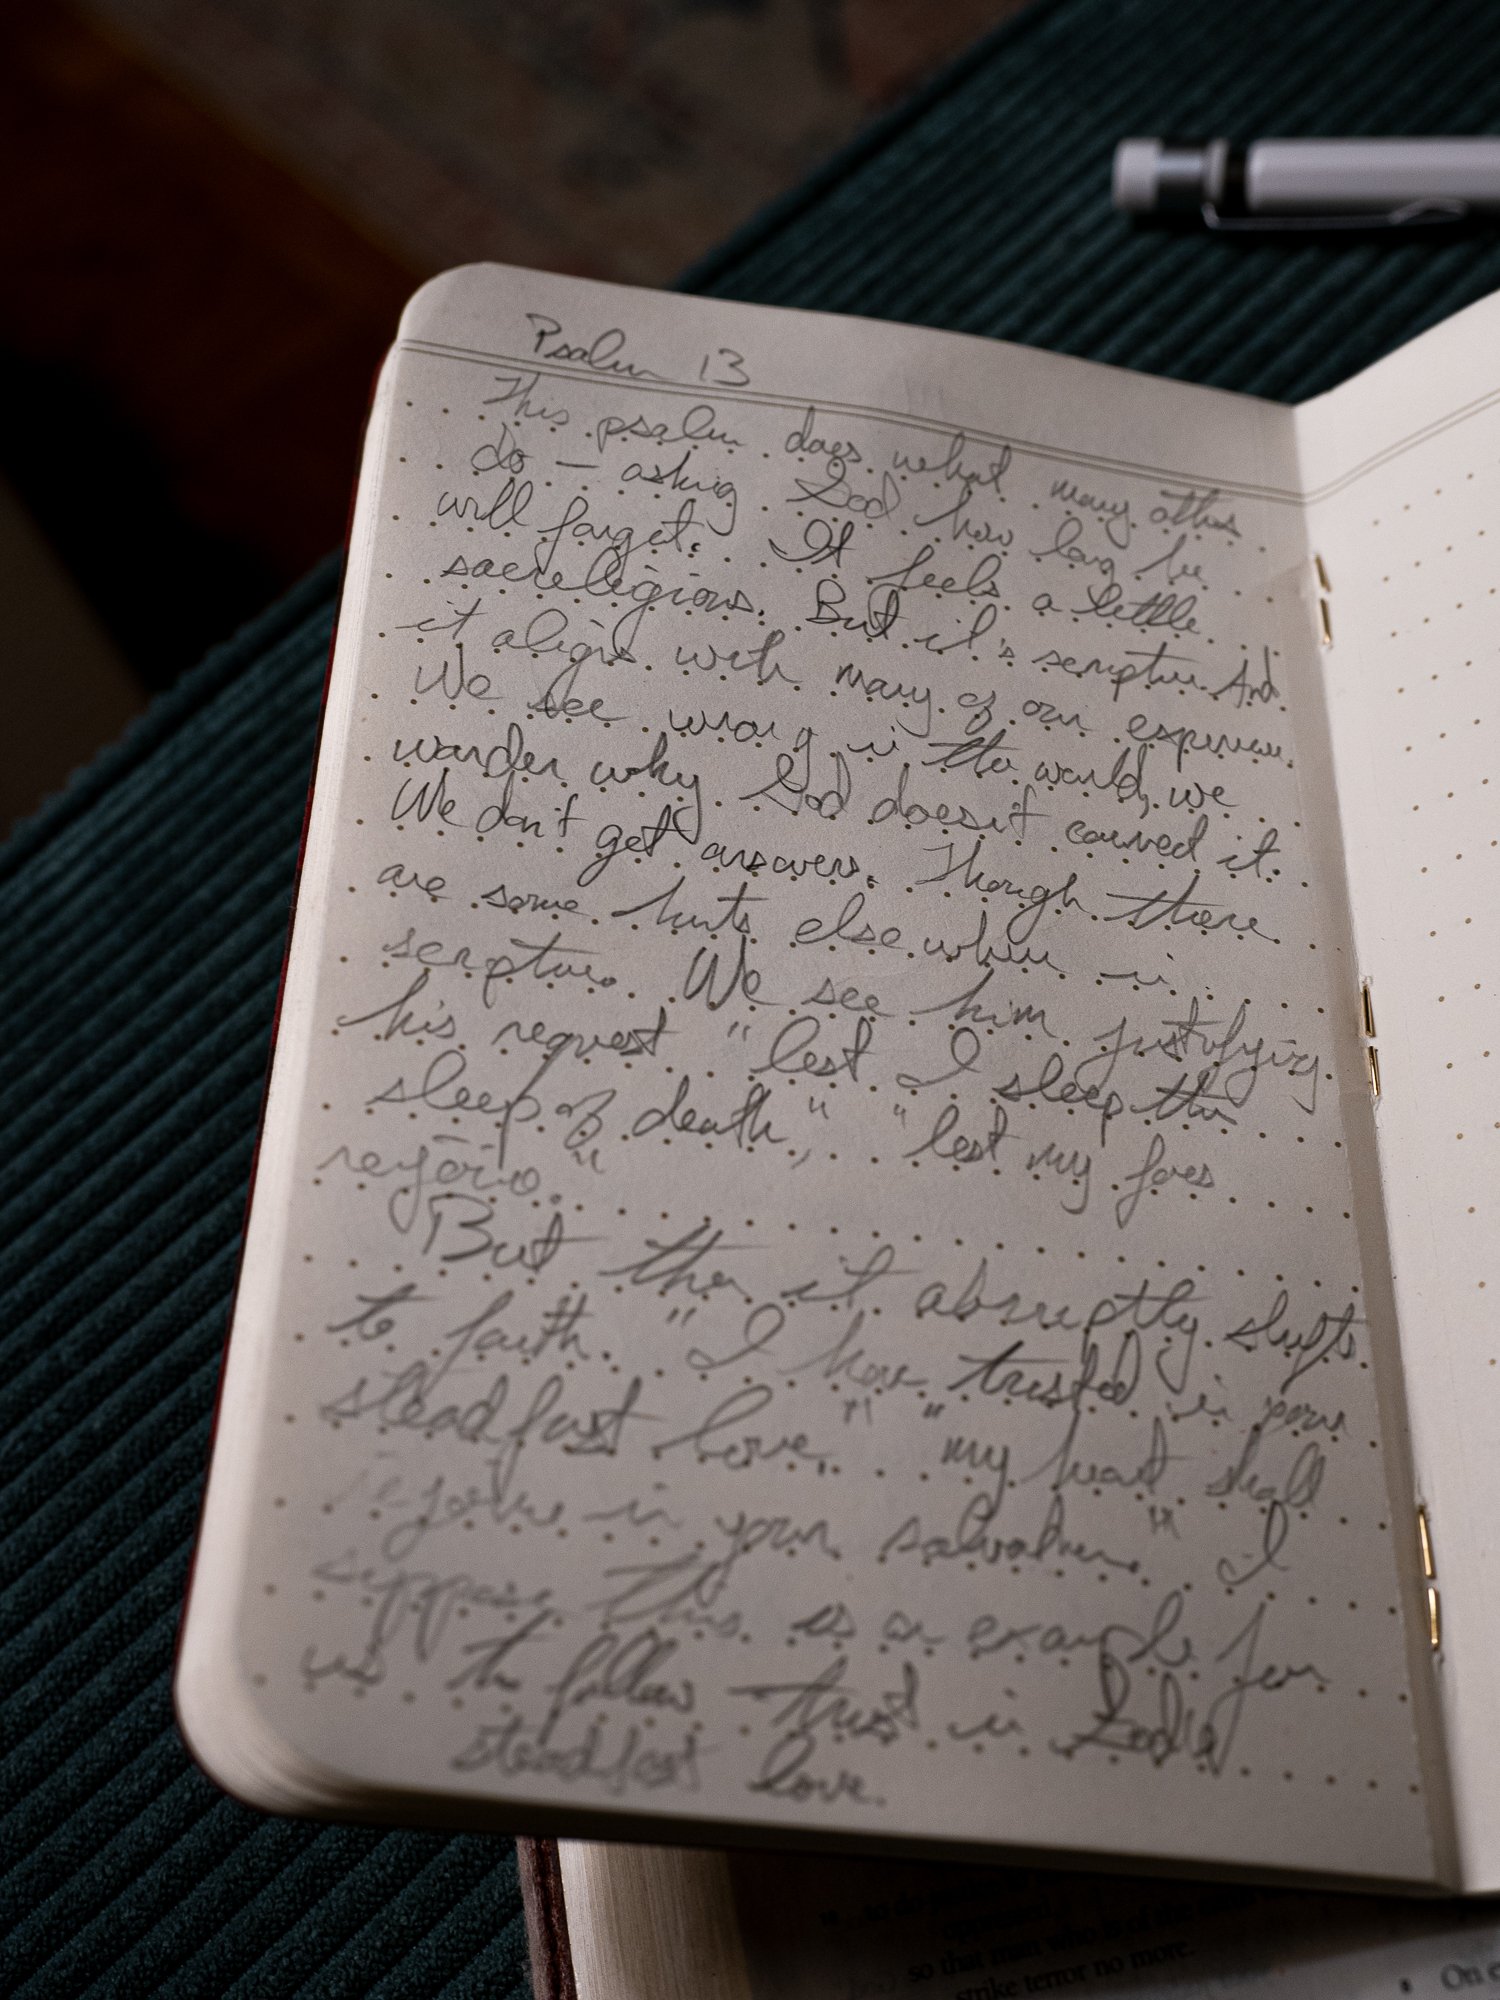 Psalm 13
This psalm does what many others
do — asking God how long he
will forget. It feels a little
sacreligious. But it's scripture. And
it aligns with many of our experience.
We see wrong in the world, we
wonder why God doesn't correct it.
We don't get answers. Though there
are some hints elsewhere in
scripture. We see him justifying
his request "lest I sleep the
sleep of death," "lest my foes
rejoice."
But then it abruptly shifts
to faith. "I have trusted in your
steadfast love," "my heart shall
rejoice in your salvation." I
suppose this is an example for
us to follow – trust in God's
steadfast love.
so that man who is of the
strike terror no more.
On